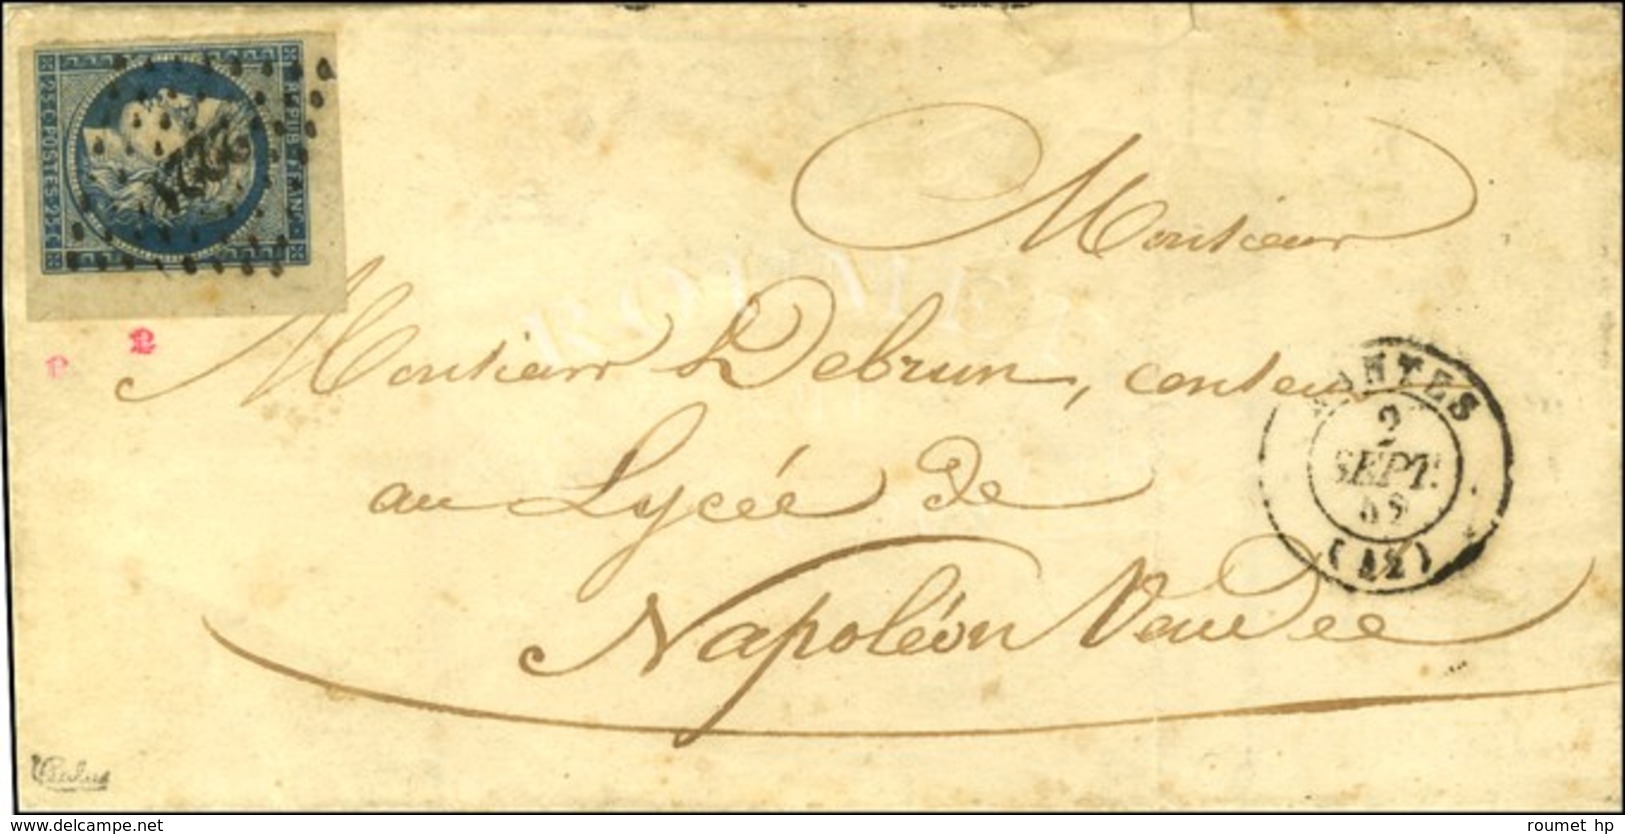 REPUB. FRANC.
25 C. POSTES 25 C.
2221
Monsieur
Monsieur Debrun, censeur
au Lycée de
Napoléon Vendée
NANTES
2
SEPT.
(42)
www.delcampe.net
roumet hp